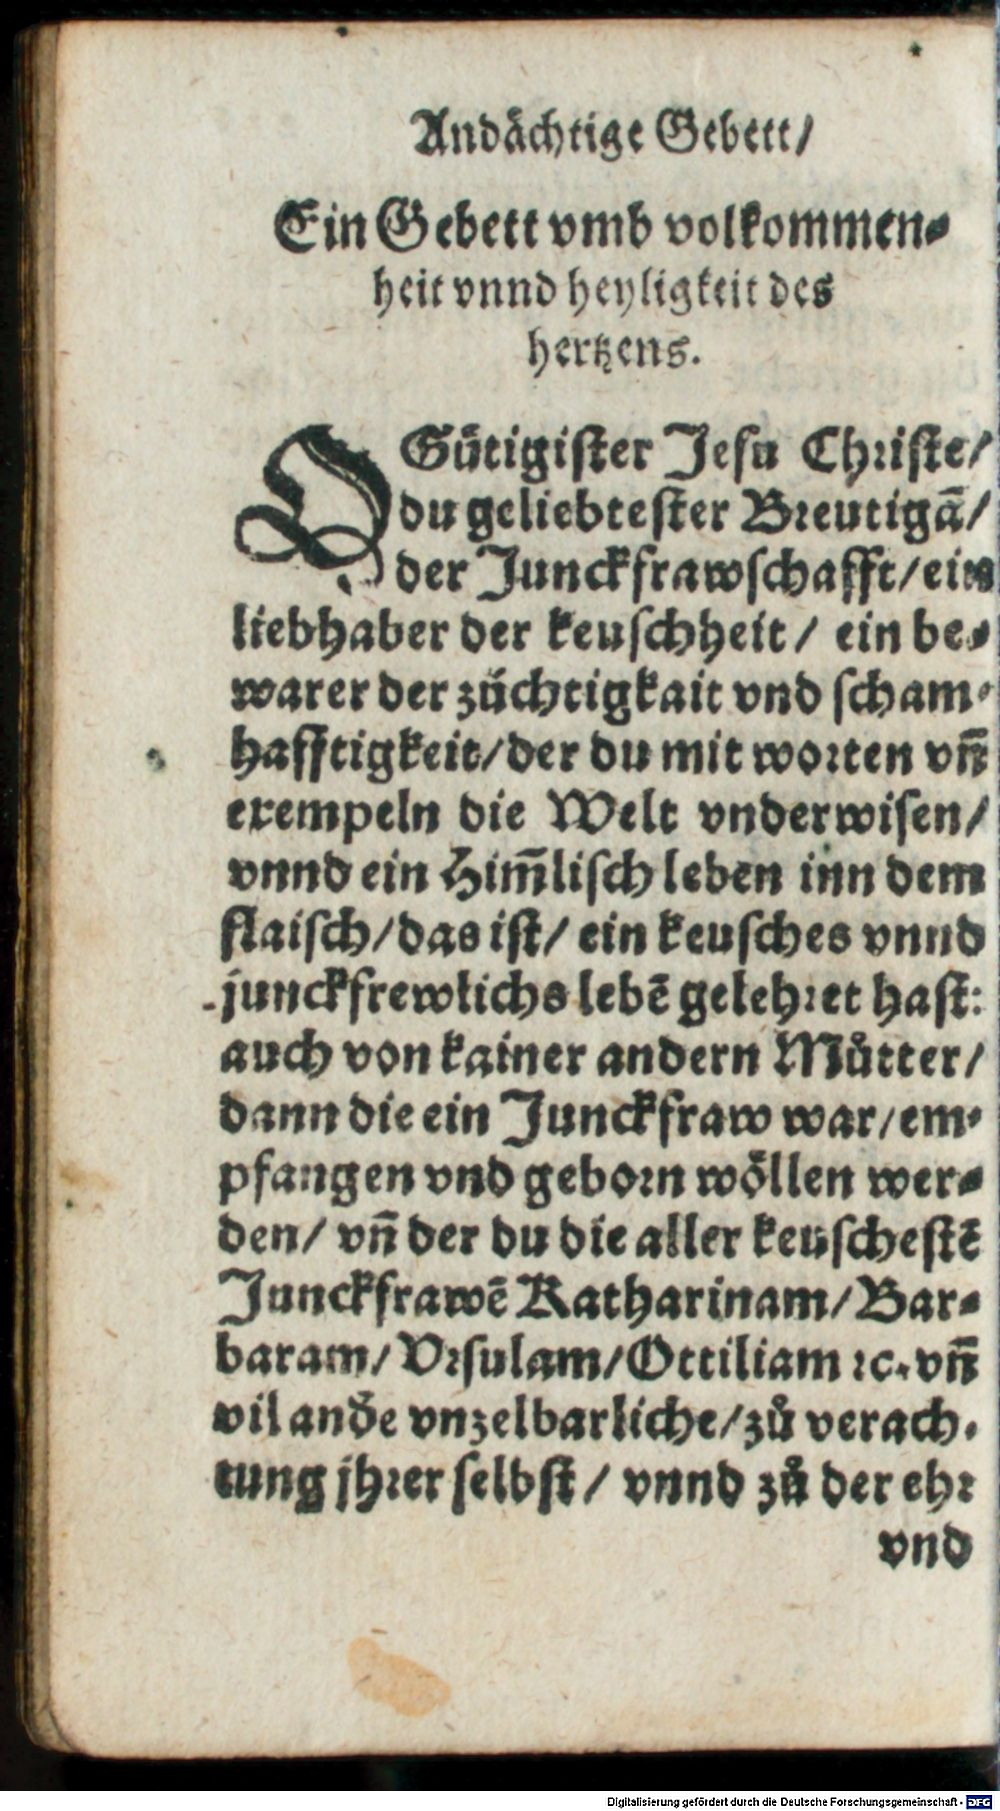 Andächtige Gebett/
Ein Gebett vmb volkommen⸗
heit vnnd heyligkeit des
hertzens.
O Gütigister Jesu Christe/
du geliebtester Breutigā/
der Junckfrawschafft/ ein
liebhaber der keuschheit/ ein be⸗
warer der züchtigkait vnd scham⸗
hafftigkeit/ der du mit worten vn̄
exempeln die Welt vnderwisen/
vnnd ein Him̄lisch leben inn dem
flaisch/ das ist/ ein keusches vnnd
junckfrewlichs lebē gelehret hast:
auch von kainer andern Můtter/
dann die ein Junckfraw war/ em⸗
pfangen vnd geborn wöllen wer⸗
den/ vn̄ der du die aller keuschestē
Junckfrawē Katharinam/ Bar⸗
baram/ Vrsulam/ Ottiliam ꝛc. vn̄
vil anďe vnzelbarliche/ zů verach⸗
tung jhrer selbst/ vnnd zů der ehr
vnd
Digitalisierung gefördert durch die Deutsche Forschungsgemeinschaft - DFG